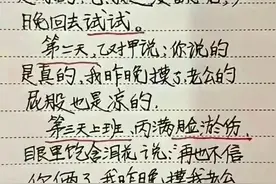 晚回去试试。
第二天,乙对甲说:你说的
是真的,我昨晚摸了,老公的
屁股也是凉的。
第三天上班,丙满脸淤伤,
眼里饱含泪花说:再也不信
你俩了,我昨晚,摸我老公